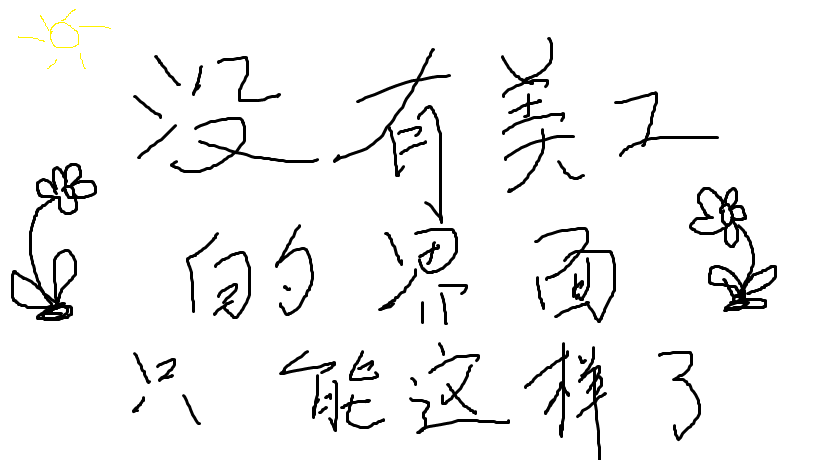 没有美工
的界面
只能这样了